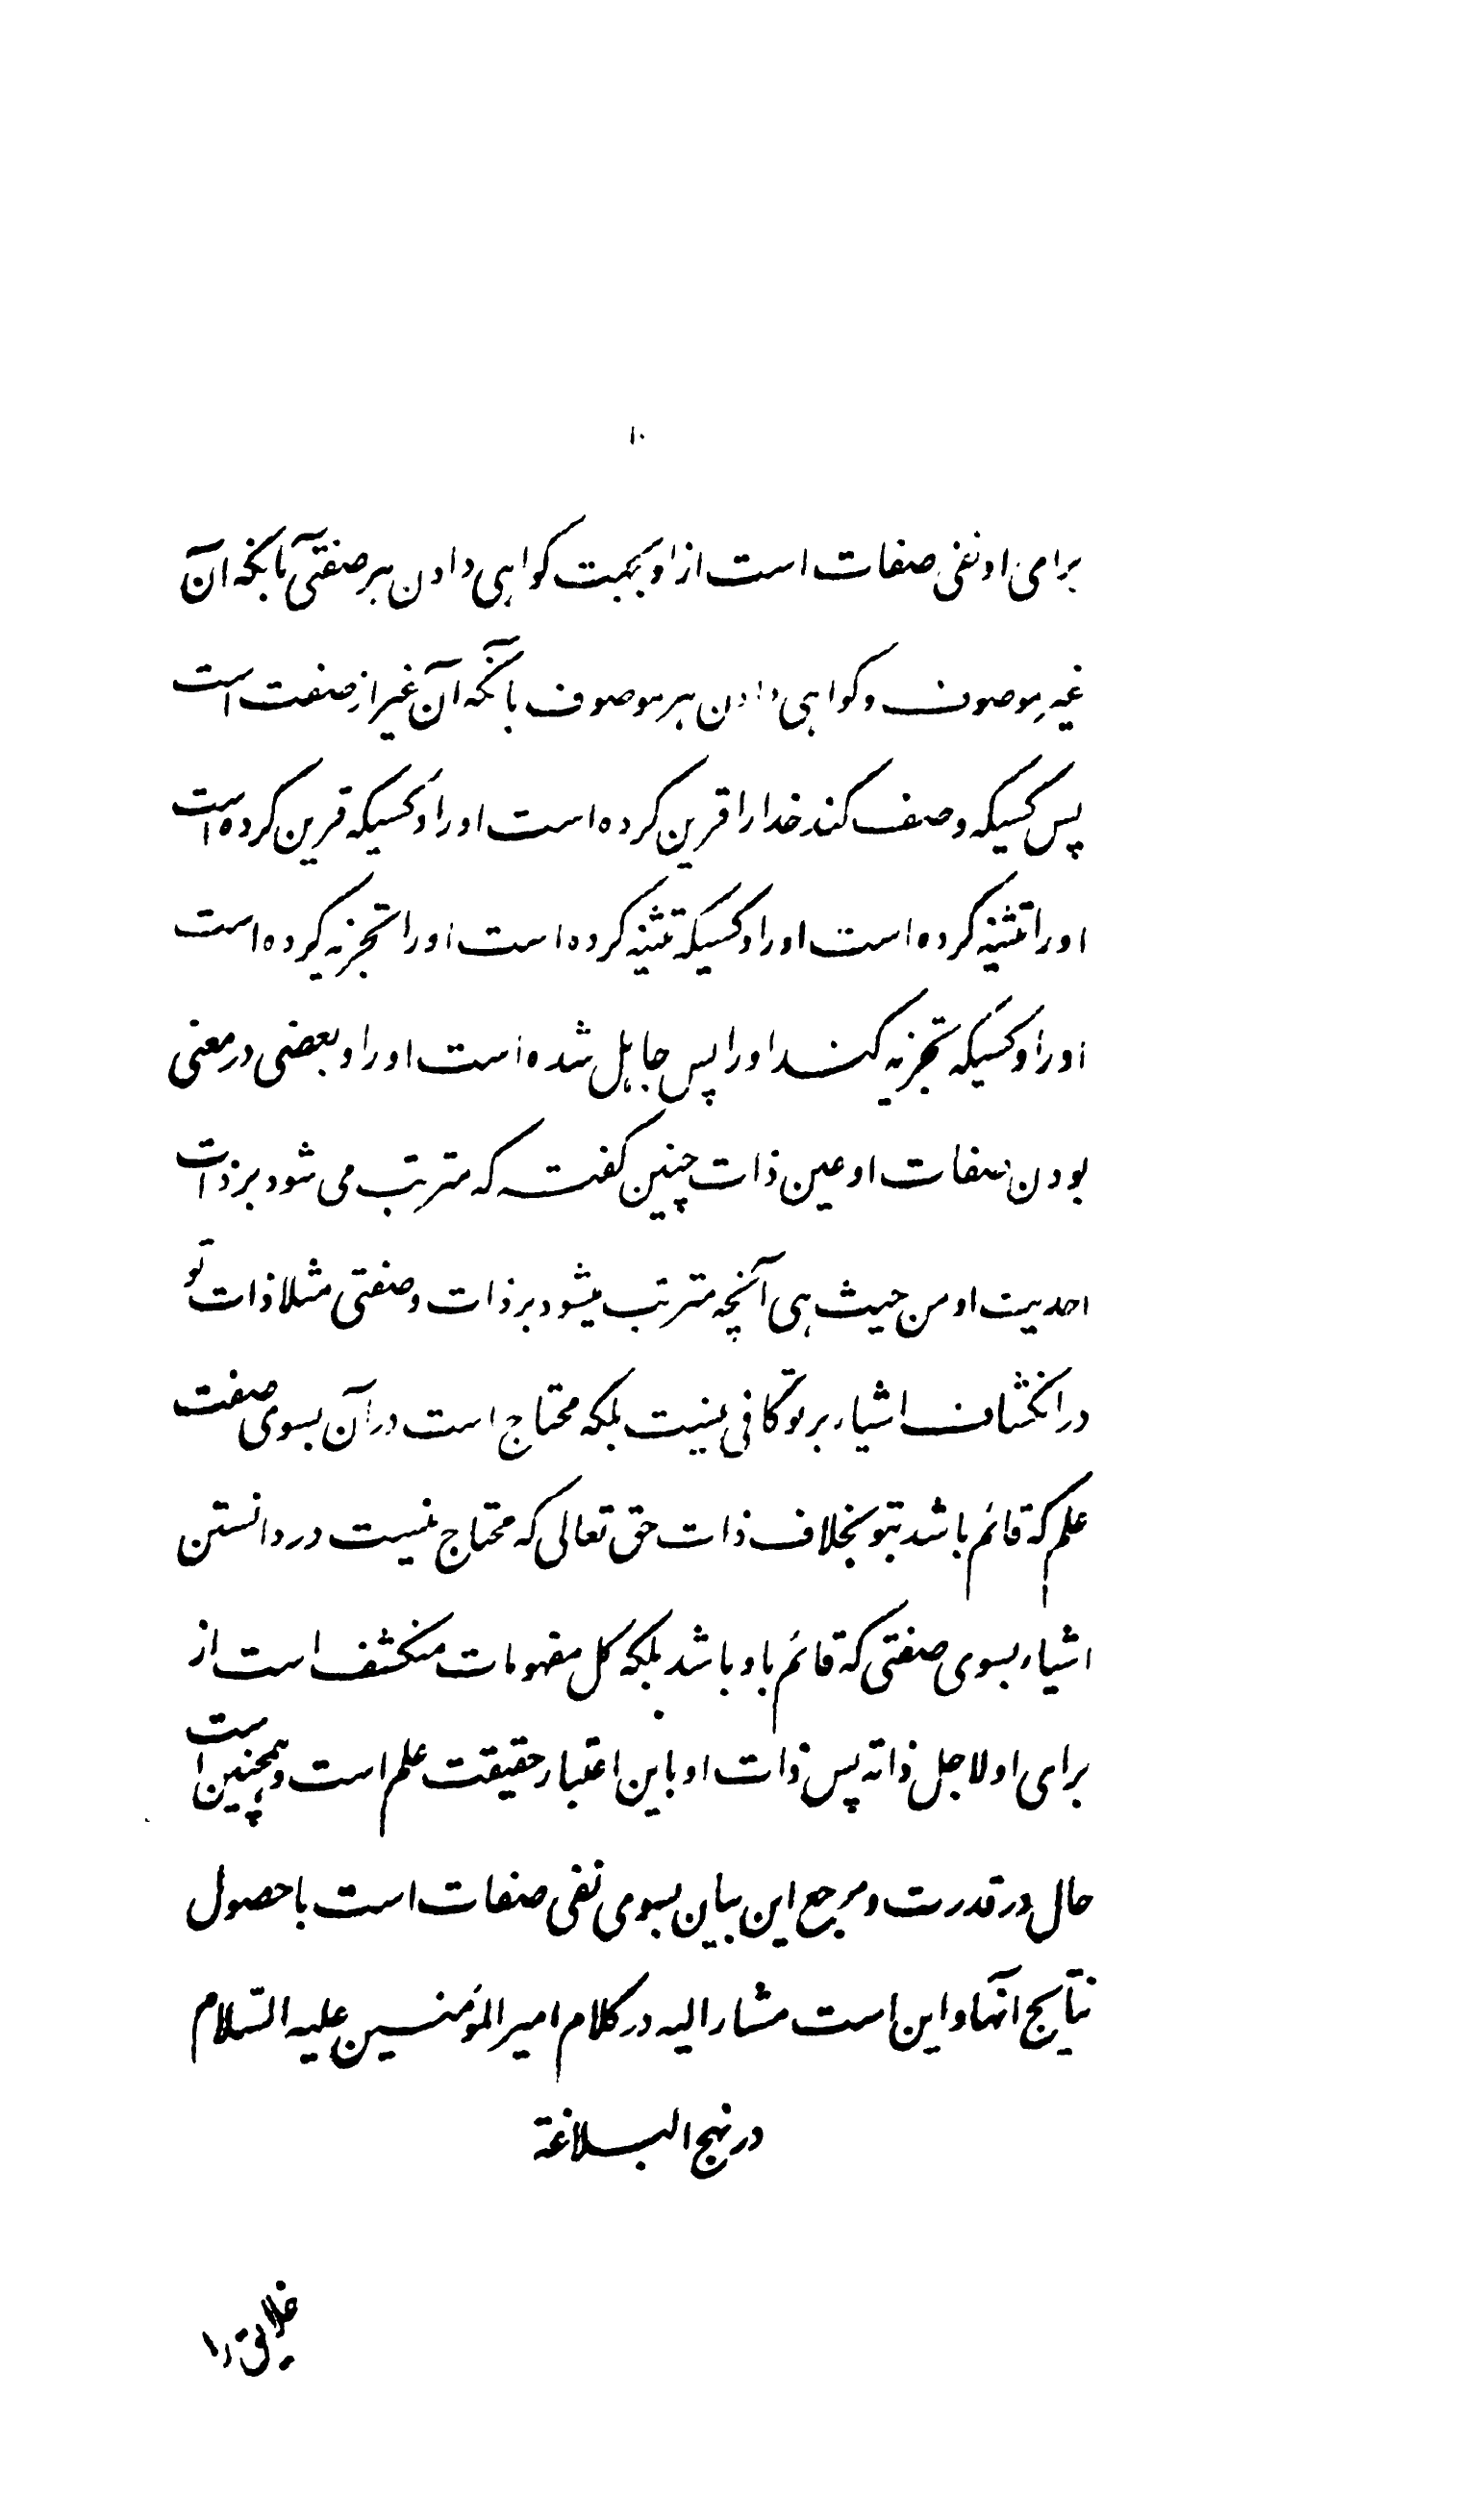 ۱۰
برای او نفی صفات است از او بجهت گواهی دادن هر صفتی بآنکه آن
غیر موصوف و گواهی دادن هر موصوف بآنکه آن غیر از صفت است
پس کسیکه وصف کند خدا را قرین کرده است او را و کسیکه قرین کرده است
او را تثنیه کرده است او را و کسیکه تثنیه کرده است او را تجزیه کرده است
او را و کسیکه تجزیه کند او را پس جاهل شده است او را و بعضی در معنی
بودن صفات او عین ذات چنین گفت که مترتب می شود بر ذات
احدیت او من حیث هی آنچه مترتب میشود بر ذات و صفتی مثلا ذات تو
در انکشاف اشیاء بر تو کافی نیست بلکه محتاج است در آن بسوی صفت
علم که قائم باشد بتو بخلاف ذات حق تعالی که محتاج نیست در دانستن
اشیاء بسوی صفتی که قائم باو باشد بلکه کل مفهومات منکشف است از
برای او لاجل ذاته پس ذات او باین اعتبار حقیقت علم است و همچنین است
حال در قدرت و مرجع این بیان بسوی نفی صفات است با حصول
نتایج آنها و این است مشار الیه در کلام امیر المؤمنین علیه السّلام
در نهج البلاغة